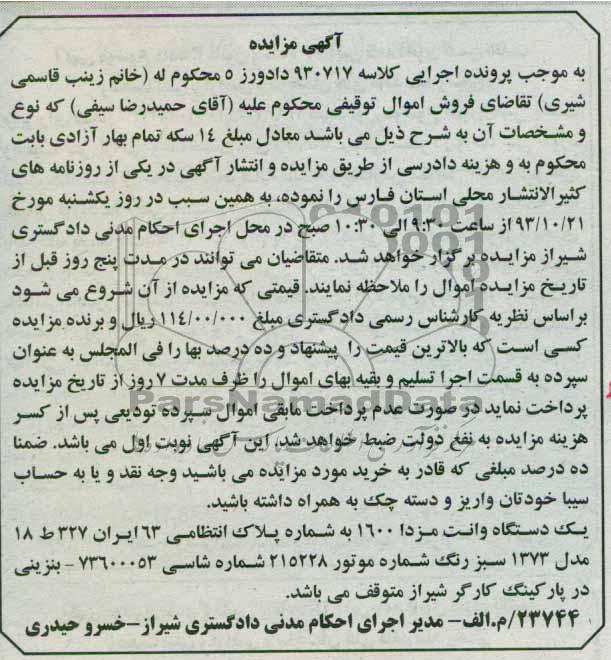 آگهی مزایده
به موجب پرونده اجرایی کلاسه ۹۳۰۷۱۷ دادورز ۵ محکوم له (خانم زینب قاسمی
شیری) تقاضای فروش اموال توقیفی محکوم علیه (آقای حمیدرضا سیفی) که نوع
و مشخصات آن به شرح ذیل می باشد معادل مبلغ ۱۴ سکه تمام بهار آزادی بابت
محکوم به و هزینه دادرسی از طریق مزایده و انتشار آگهی در یکی از روزنامه های
کثیرالانتشار محلی استان فارس را نموده، به همین سبب در روز یکشنبه مورخ
۹۳/۱۰/۲۱ از ساعت ۹:۳۰ الی ۱۰:۳۰ صبح در محل اجرای احکام مدنی دادگستری
شیراز مزایده برگزار خواهد شد. متقاضیان می توانند در مدت پنج روز قبل از
تاریخ مزایده اموال را ملاحظه نمایند. قیمتی که مزایده از آن شروع می شود
براساس نظریه کارشناس رسمی دادگستری مبلغ ۱۱۴/۰۰/۰۰۰ ریال و برنده مزایده
کسی است که بالاترین قیمت را پیشنهاد و ده درصد بها را فی المجلس به عنوان
سپرده به قسمت اجرا تسلیم و بقیه بهای اموال را ظرف مدت ۷ روز از تاریخ مزایده
پرداخت نماید در صورت عدم پرداخت مابقی اموال سپرده تودیعی پس از کسر
هزینه مزایده به نفع دولت ضبط خواهد شد، این آگهی نوبت اول می باشد. ضمنا
ده درصد مبلغی که قادر به خرید مورد مزایده می باشید وجه نقد و یا به حساب
سیبا خودتان واریز و دسته چک به همراه داشته باشید.
یک دستگاه وانت مزدا ۱۶۰۰ به شماره پلاک انتظامی ۶۳ ایران ۳۲۷ ط ۱۸
مدل ۱۳۷۳ سبز رنگ شماره موتور ۲۱۵۲۲۸ شماره شاسی ۷۳۶۰۰۰۵۳ - بنزینی
در پارکینگ کارگر شیراز متوقف می باشد.
۲۳۷۴۴/م.الف- مدیر اجرای احکام مدنی دادگستری شیراز-خسرو حیدری
ParsNamadData